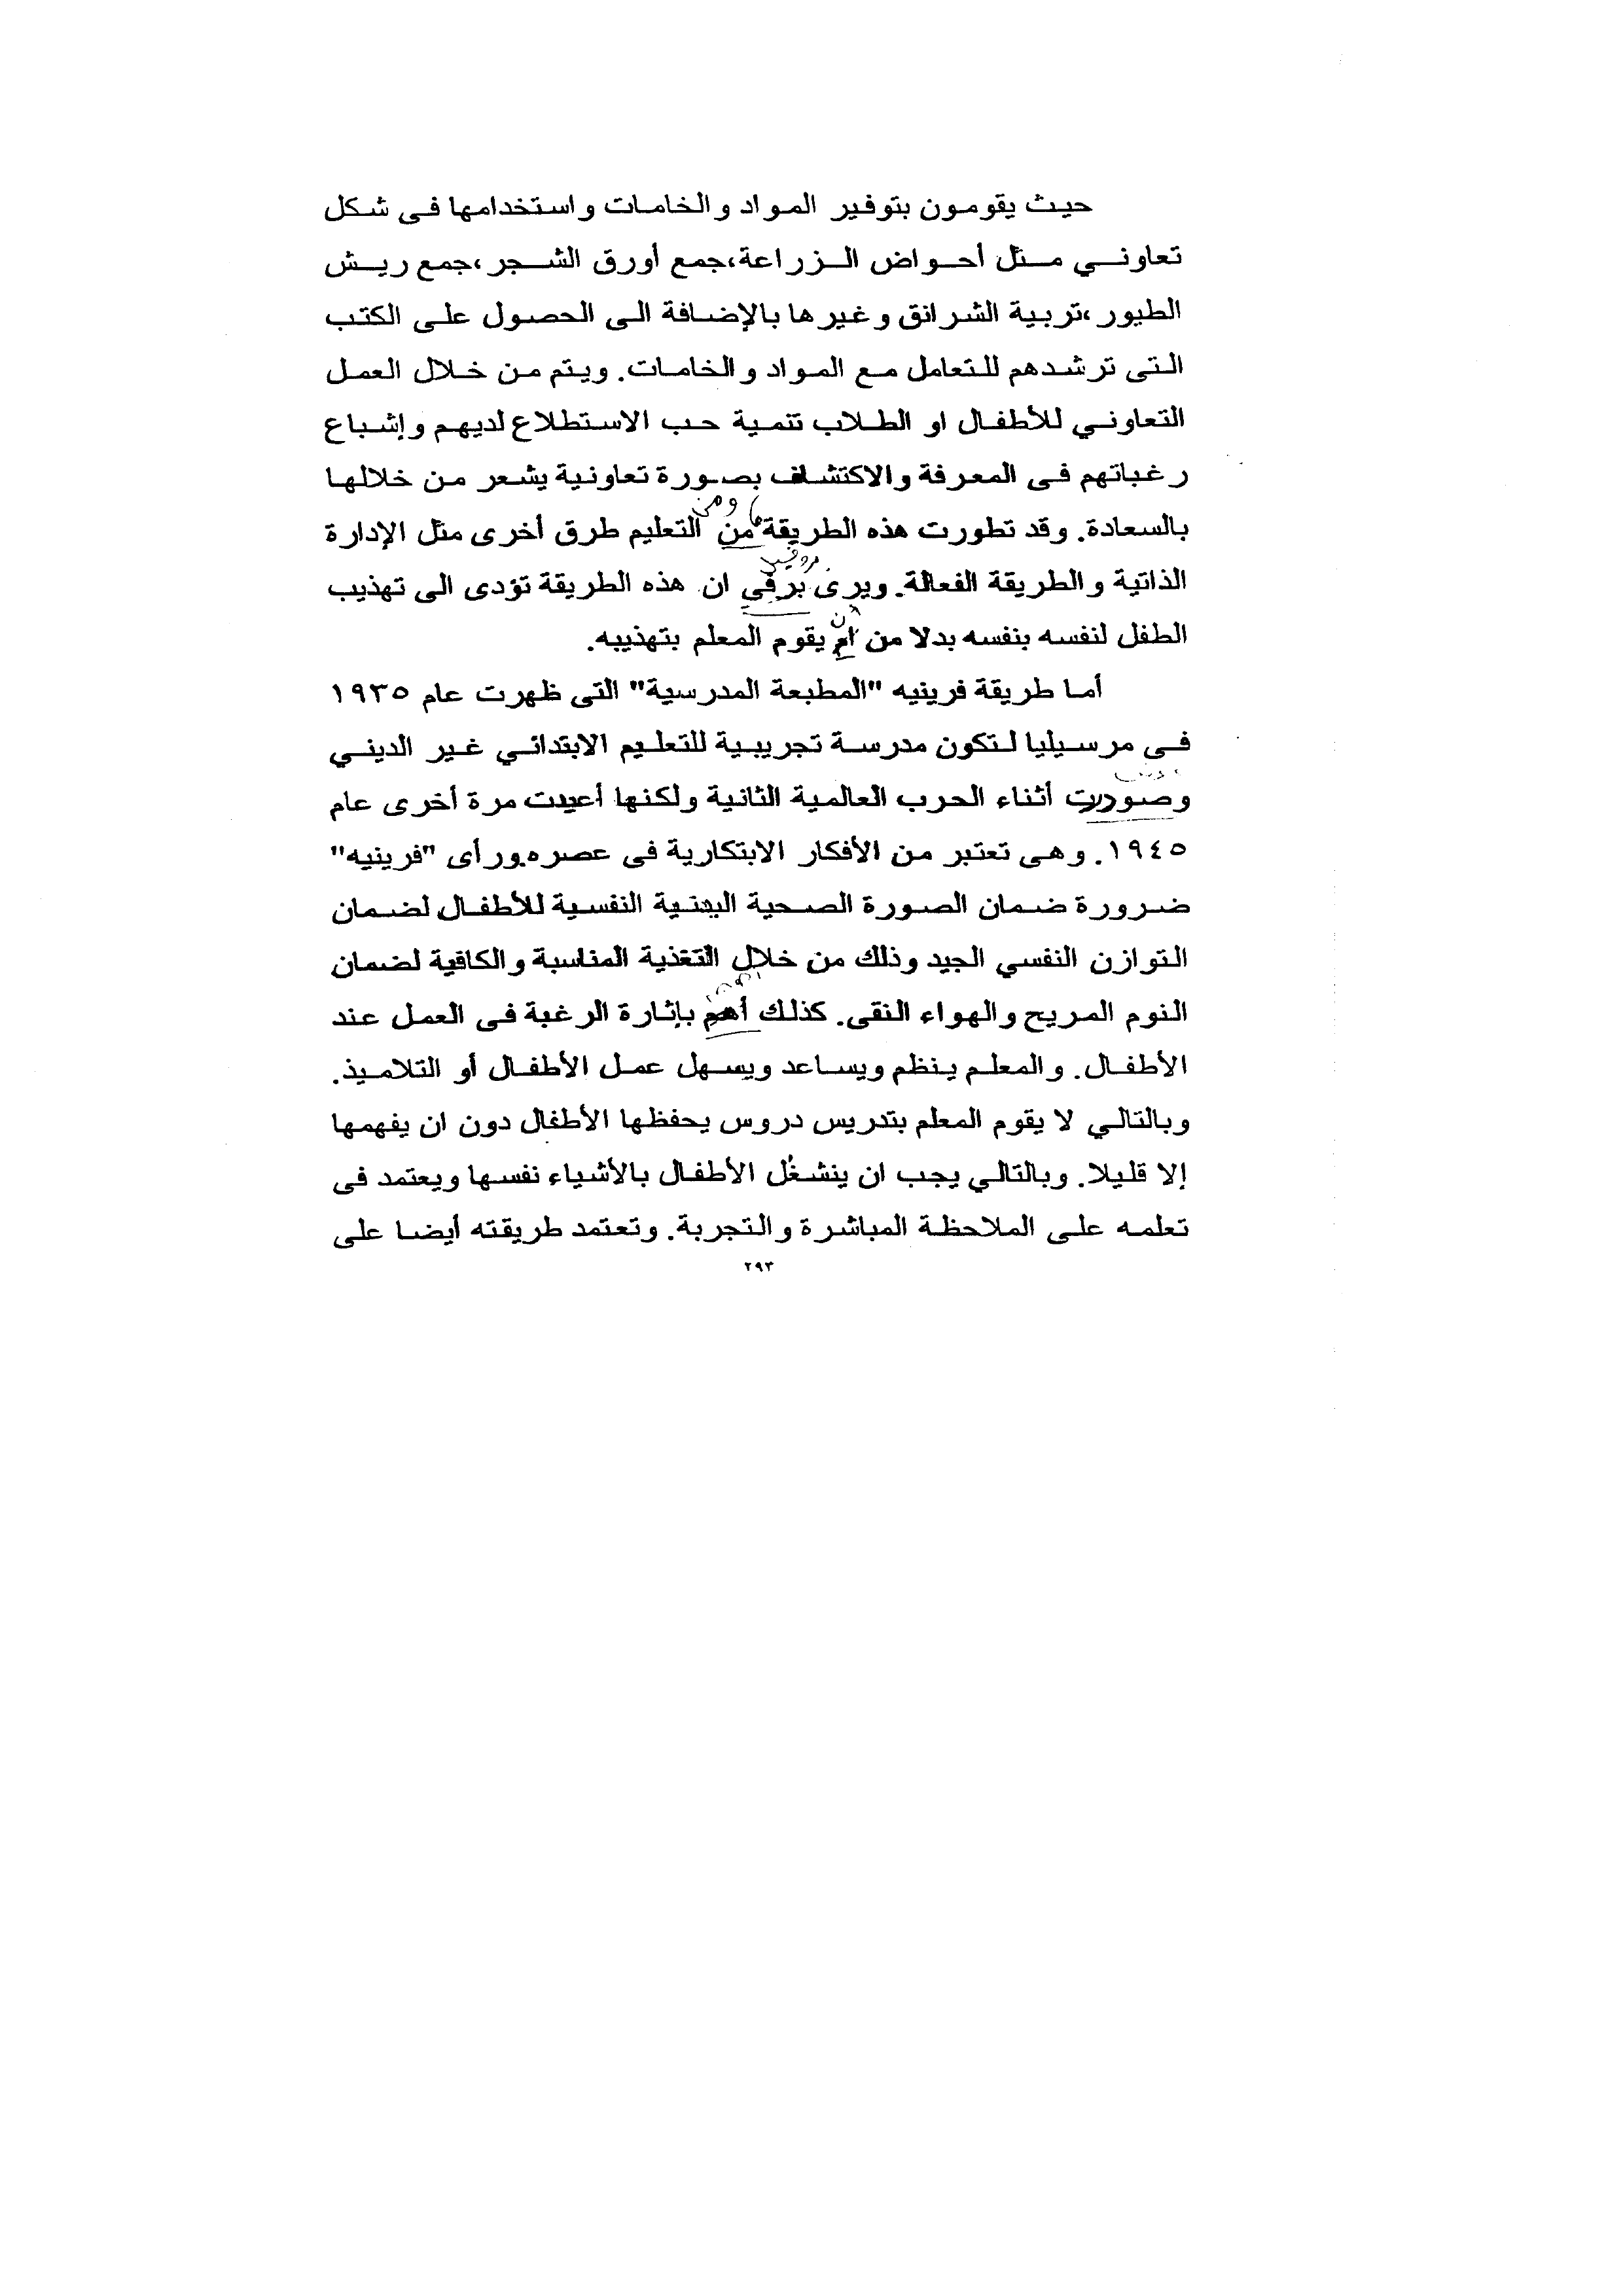 حيث يقومون بتوفير المواد والخامات واستخدامها فى شكل
تعاوني مثل أحواض الزراعة،جمع أورق الشجر،جمع ريش
الطيور،تربية الشرانق وغيرها بالإضافة الى الحصول على الكتب
التى ترشدهم للتعامل مع المواد والخامات. ويتم من خلال العمل
التعاوني للأطفال او الطلاب تتمية حب الاستطلاع لديهم وإشباع
رغباتهم فى المعرفة والاكتشاف بصورة تعاونية يشعر من خلالها
ومن
بالسعادة. وقد تطورت هذه الطريقة من التعليم طرق أخرى مثل الإدارة
الذاتية والطريقة الفعالة. ويرى برفي ان هذه الطريقة تؤدى الى تهذيب
أن
الطفل لنفسه بنفسه بدلا من ام يقوم المعلم بتهذيبه.
أما طريقة فرينيه "المطبعة المدرسية" التى ظهرت عام ١٩٣٥
فى مرسيليا لتكون مدرسة تجريبية للتعليم الابتدائي غير الديني
وصودرت أثناء الحرب العالمية الثانية ولكنها أعيدت مرة أخرى عام
١٩٤٥. وهى تعتبر من الأفكار الابتكارية فى عصره.ورأى "فرينيه"
ضرورة ضمان الصورة الصحية البدنية النفسية للأطفال لضمان
التوازن النفسي الجيد وذلك من خلال التغذية المناسبة والكافية لضمان
النوم المريح والهواء النقى. كذلك أهم بإثارة الرغبة فى العمل عند
الأطفال. والمعلم ينظم ويساعد ويسهل عمل الأطفال أو التلاميذ.
وبالتالي لا يقوم المعلم بتدريس دروس يحفظها الأطفال دون ان يفهمها
إلا قليلا. وبالتالي يجب ان ينشغل الأطفال بالأشياء نفسها ويعتمد فى
تعلمه على الملاحظة المباشرة والتجربة. وتعتمد طريقته أيضا على
٢٩٣